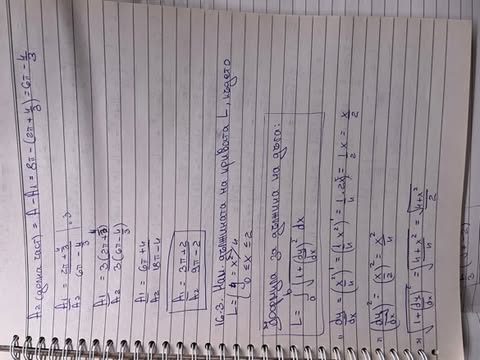 A₂ (долна част) = A - A₁ = 8π - (2π + 4/3) = 6π - 4/3
A₁/A₂ = (2π + 4/3)/(6π - 4/3) | . 3
A₁/A₂ = 3(2π + 4/3)/3(6π - 4/3)
A₁/A₂ = (6π + 4)/(18π - 4)
A₁/A₂ = (3π + 2)/(9π - 2)
16.3. Нам. дължината на кривата L, където
L = { y = x²/4
0 ≤ x ≤ 2
Формула за дължина на дъга:
L = ∫ₐᵇ √(1 + (dy/dx)²) dx
1) dy/dx = (x²/4)' = (1/4 x²)' = 1/4 . 2x = 1/2 x = x/2
2) (dy/dx)² = (x/2)² = x²/4
3) √(1 + (dy/dx)²) = √((4 + x²)/4) = √(4 + x²)/2